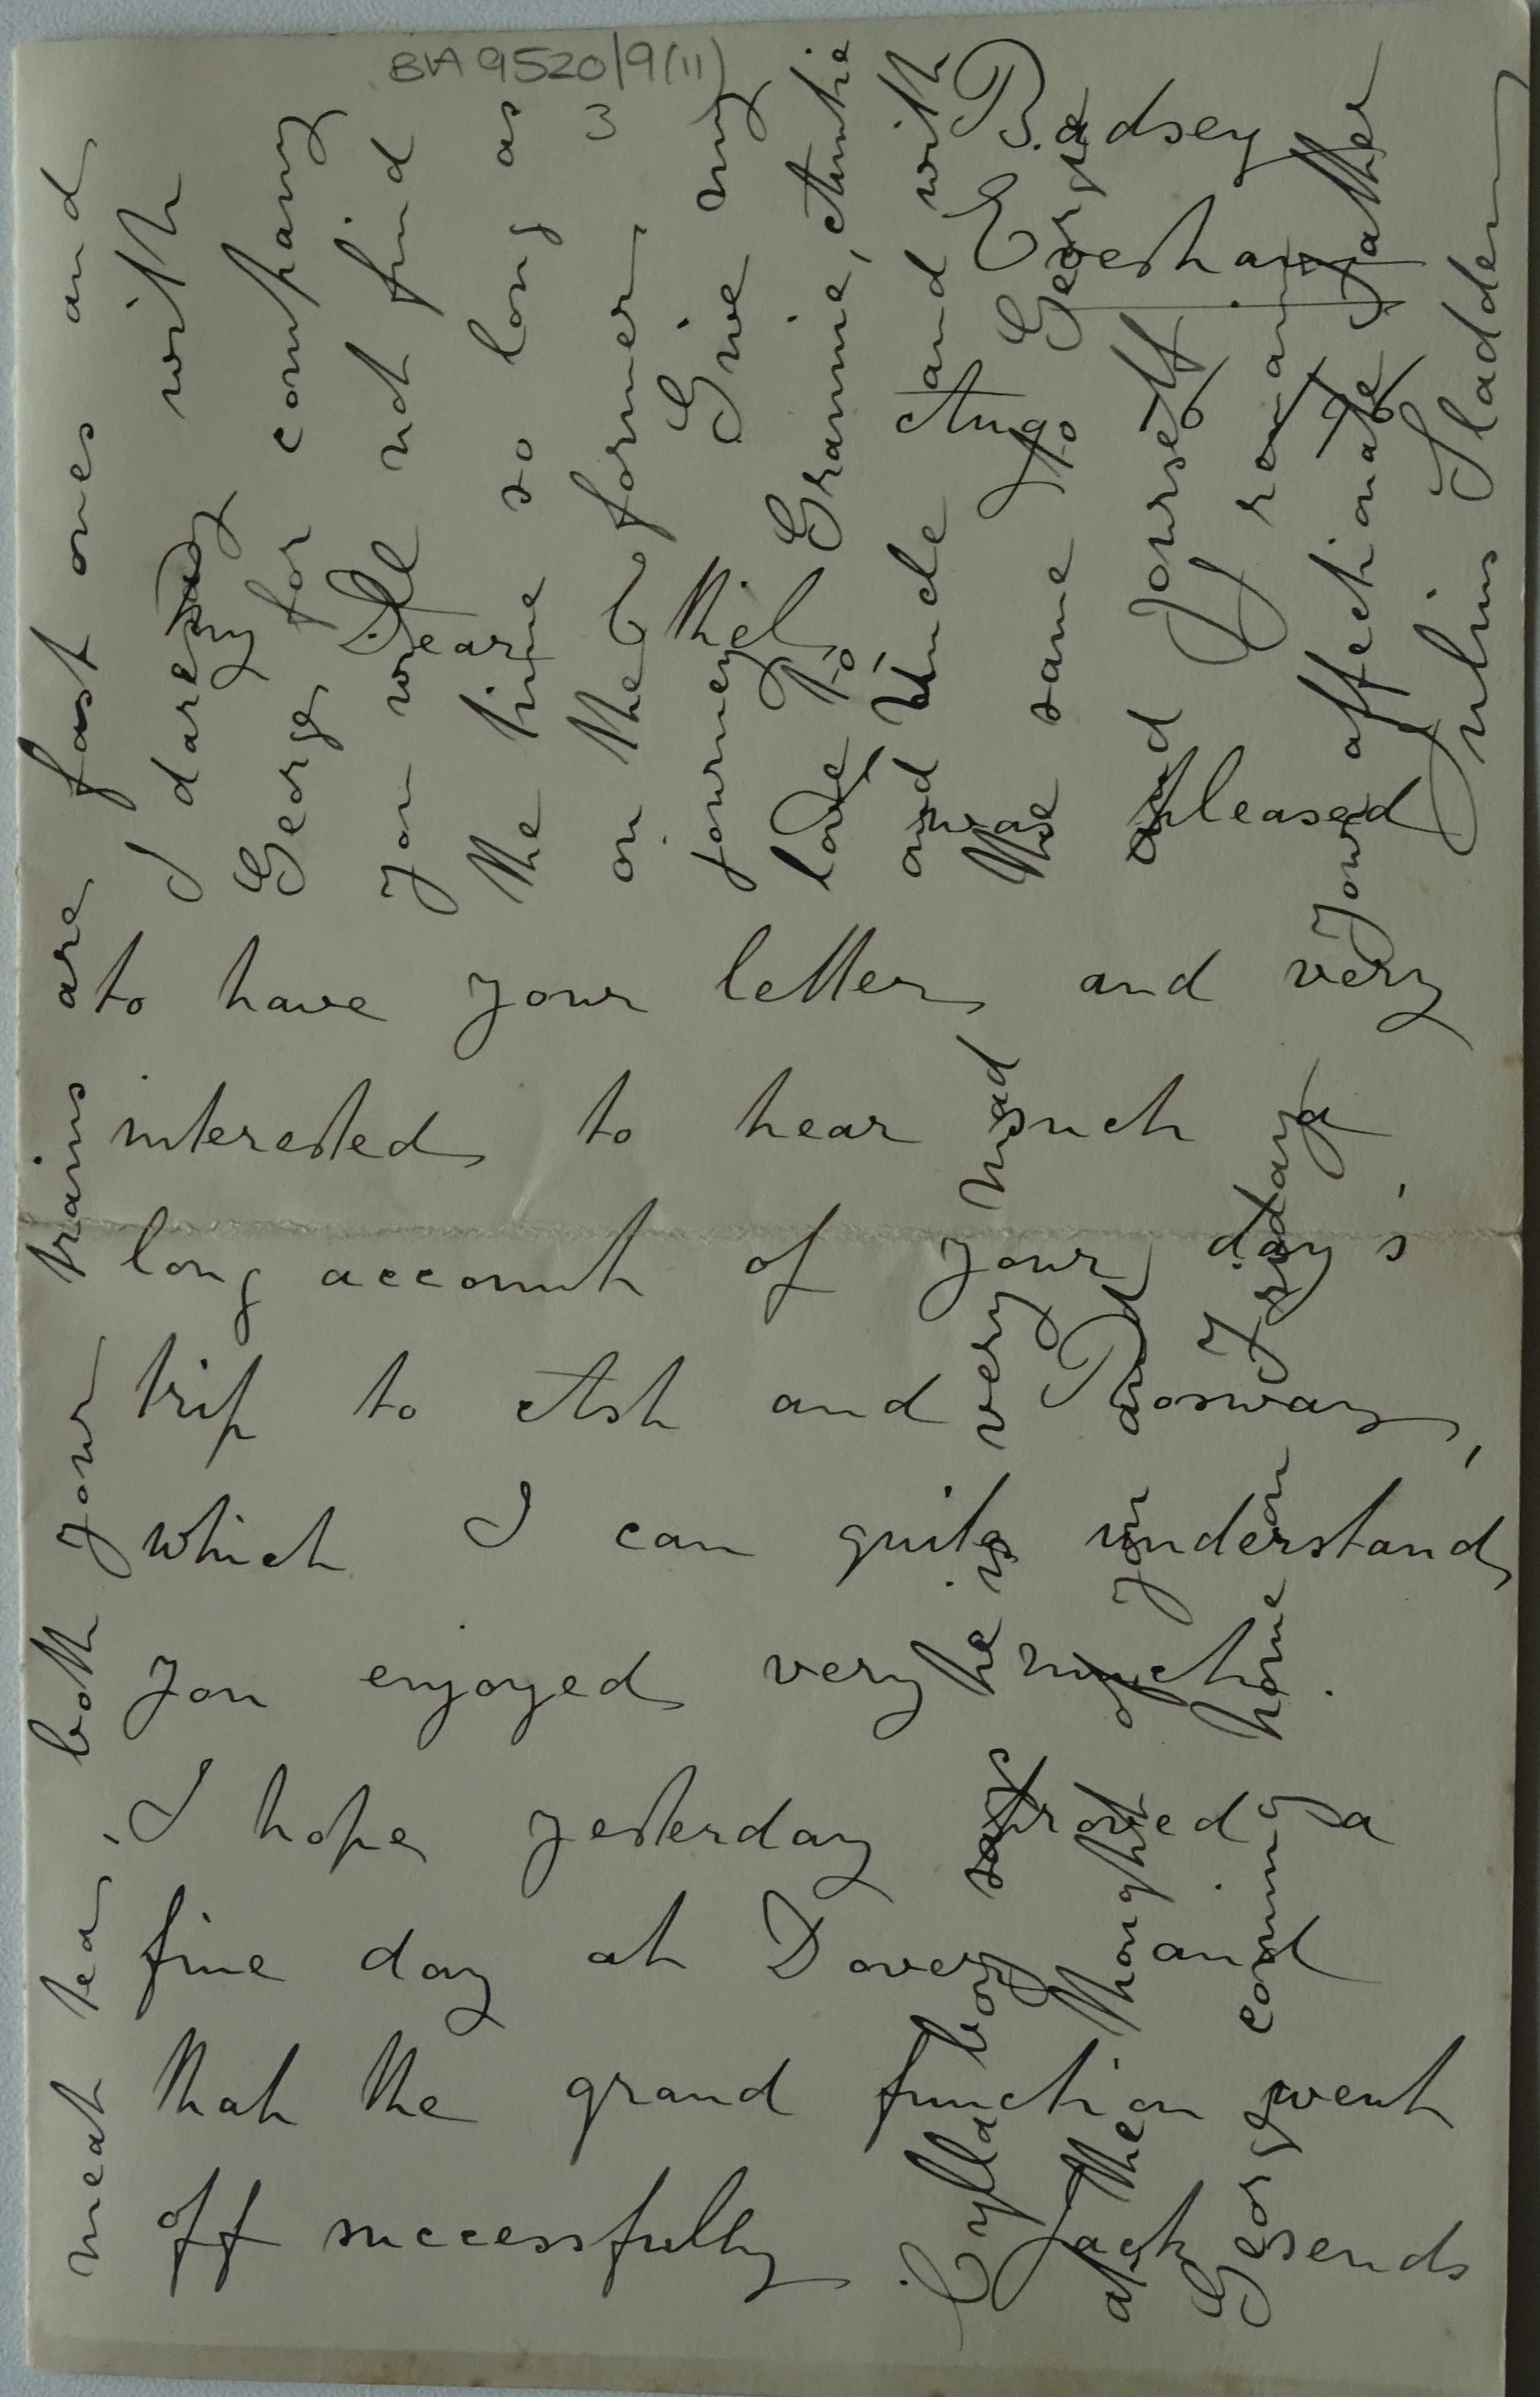 BA 9520/9(11)
3
Badsey
Evesham
Aug
Dear Ethel
I was pleased
to have your letter and very
interested to hear such a
long account of your day's
trip to Ash and
which I can quite understand
you enjoyed very much.
I hope yesterday proved a
fine day at Dover and
that the grand function went
off successfully
Jack sends
meat tea; both your trains are fast ones and
I daresay with
George for company
you will not find
the time so long as
on the former
journey. Give my
love to Grannie, Auntie
and Uncle and with
the same to George
and yourself
I remain
Your affectionate father
Julius Sladden
Cylla boy says he is very mad
at the thought of you and
George coming home on Friday